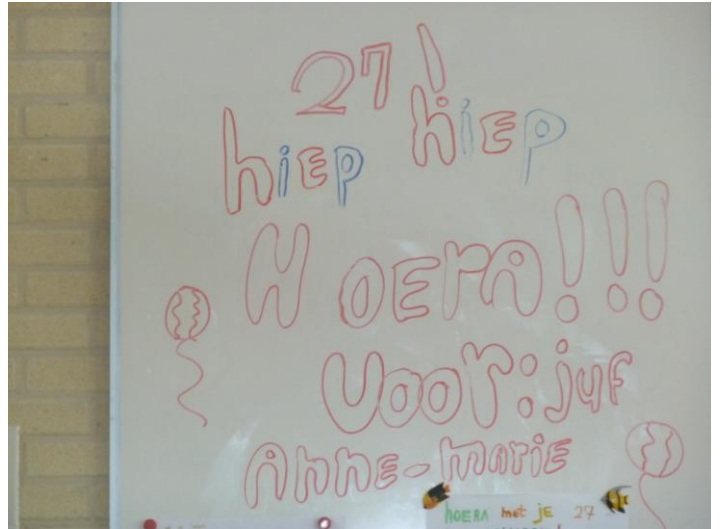 27!
hiep hiep
HOERA!!!
Voor: juf
Anne-marie
HOERA met jE 27